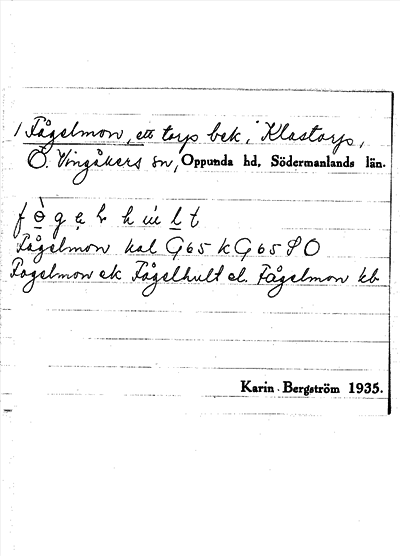 / Fågelmon, ett torp bek. i Klastorp,
Ö. Vingåkers sn, Oppunda hd, Södermanlands län.
Fågelmon kal G65 k G65 S O
Fogelmon ek Fågelhult el. Fågelmon kb
Karin Bergström 1935.